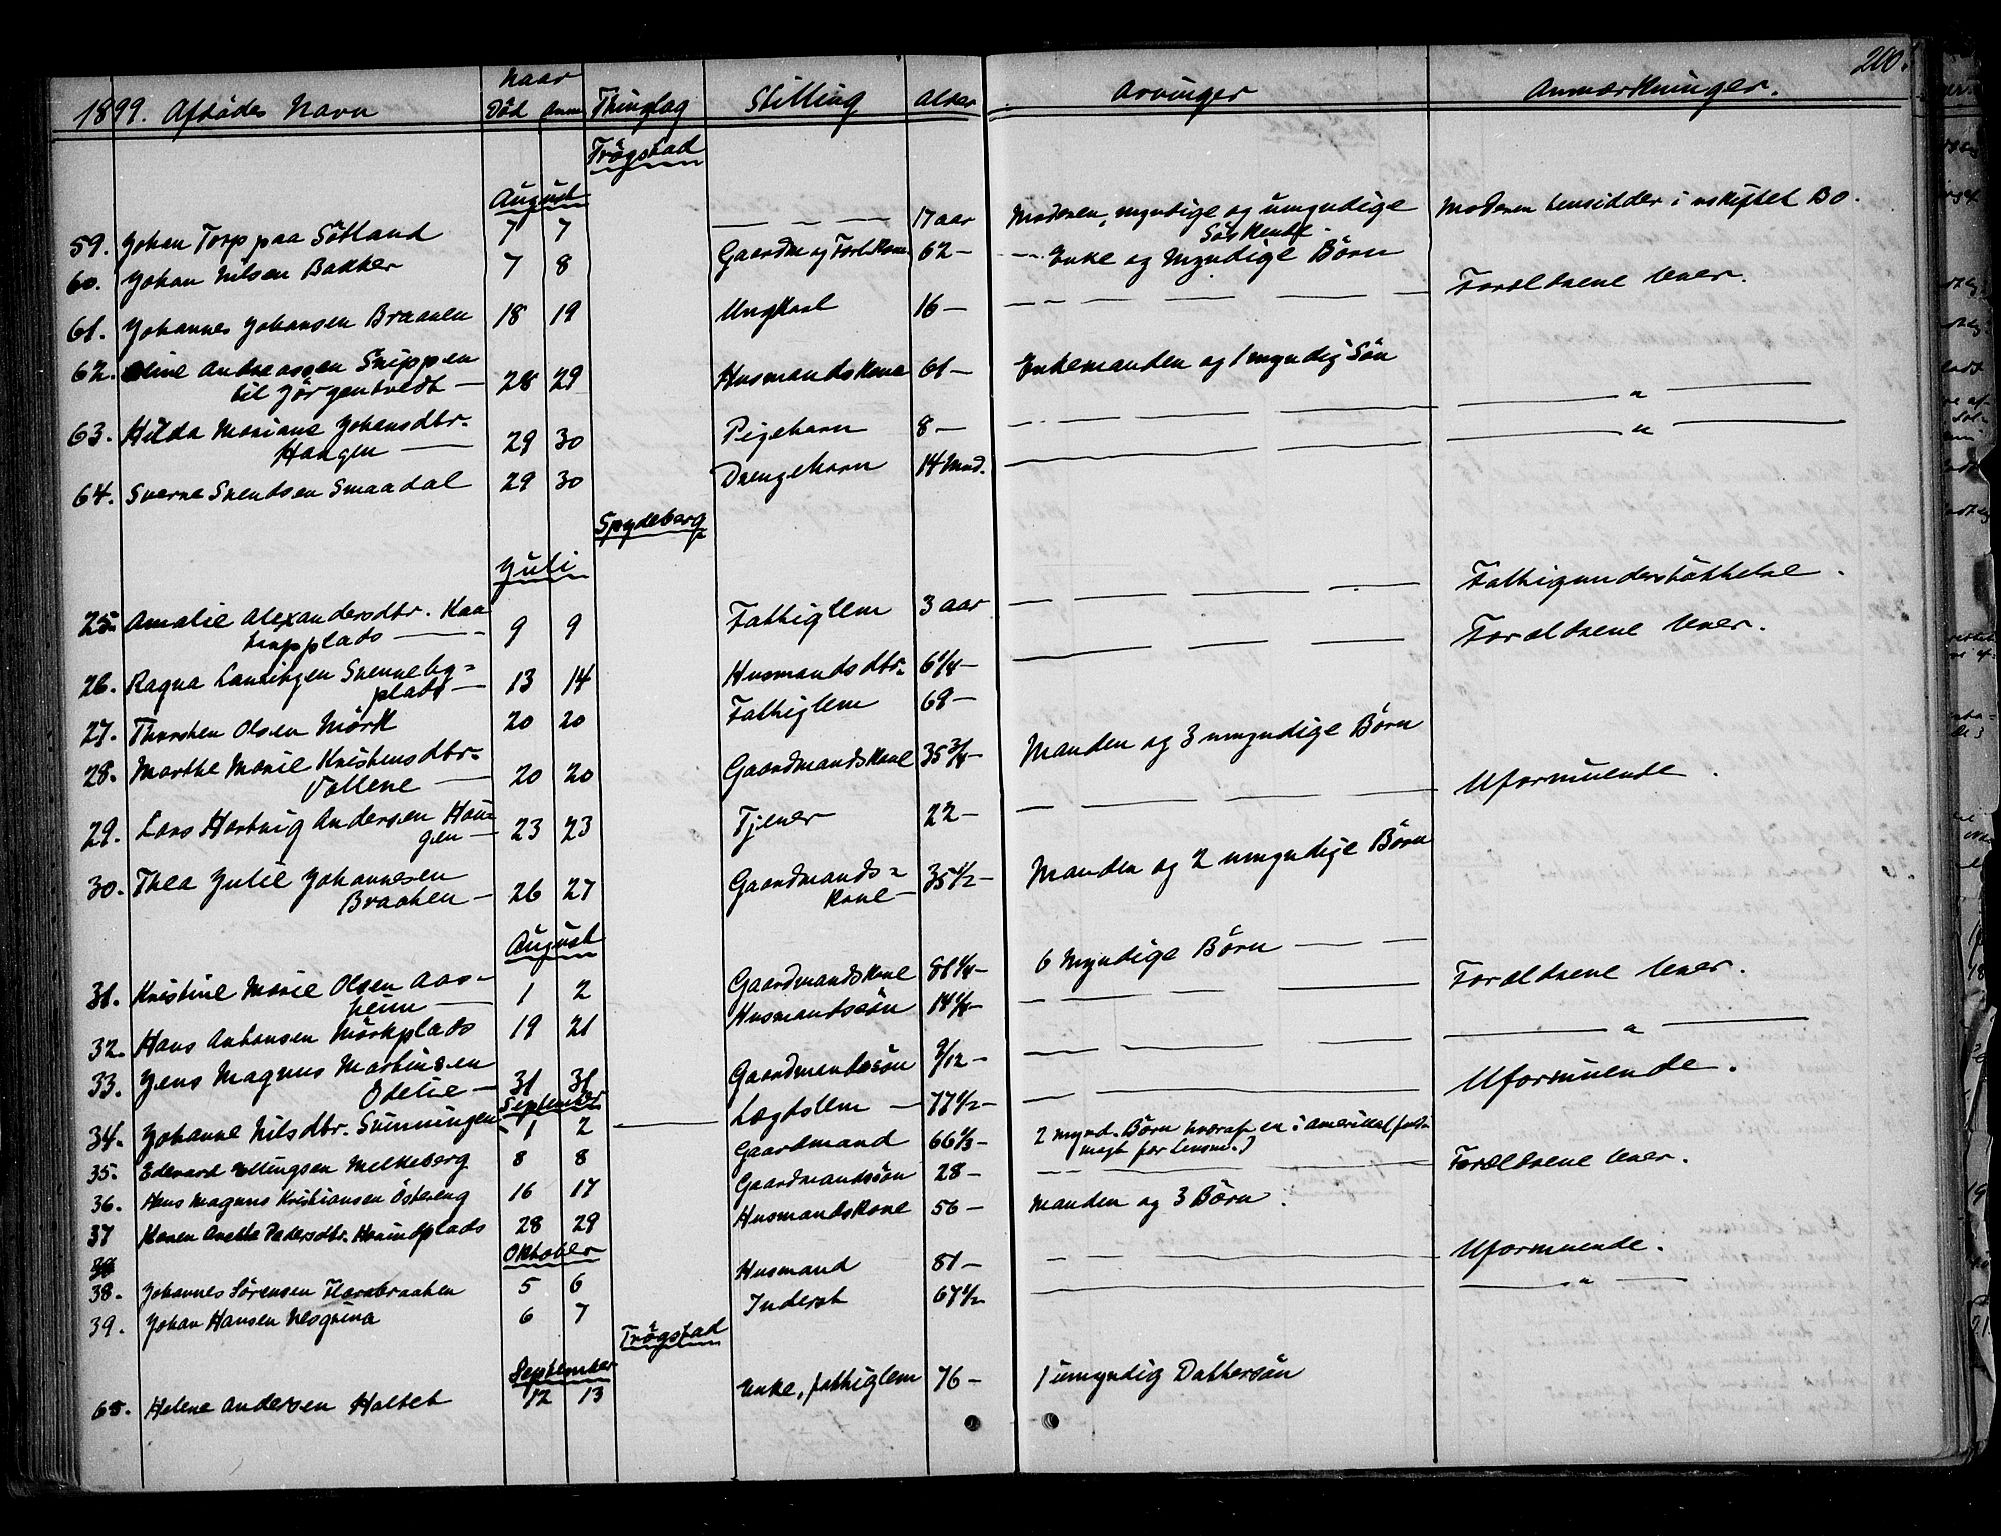 200.
1899. Afdødes Navn Naar Død Anm Thinglag Stilling Alder Arvinger Anmærkninger.
Trøgstad
August
59. Johan Torp paa Sötland 7 7 — — — 17 aar Moderen, myndige og umyndige Söskende. Moderen hensidder i uskiftet Bo.
60. Johan Nilsen Bakker 7 8 Gaardm og 62 — Enke og Myndige Børn
61. Johannes Johansen Braaten 18 19 Ungkarl 16 — — — — — — Forældrene lever.
62. Oline Andreassen Snippen
til Jörgentvedt — 28 29 Husmandskone 61 — Enkemanden og 1 myndig Sön
63. Hilda Mariane Johansdtr.
Haugen — 29 30 Pigebarn 8 — — — — — — — " —
64. Sverre Svendsen Smaadal 29 30 Drengebarn 14 Mnd. — — — — — " —
Spydeberg
Juli
25. Amalie Alexandersdtr. Kaa
trupplads — 9 9 Fattiglem 3 aar — — — — — Fattigunderstøttelse.
26. Ragna Lauritzen Svenneby=
plads — 13 14 Husmandsdtr. 6 1/4 — — — — — Forældrene lever.
27. Thorsten Olsen Mörk 20 20 Fattiglem 69 —
28. Marthe Marie Kristensdtr.
Vollene — 20 20 Gaardmandskone 35 3/4 — Manden og 3 umyndige Børn
29. Lars Hartvig Andersen Hau
gen — 23 23 Tjener 22 — — — — — — Uformuende.
30. Thea Julie Johannesen
Braaten — 26 27 Gaardmands=
kone — 35 1/2 — Manden og 2 umyndige Børn
August
31. Kristine Marie Olsen Aas=
heim — 1 2 Gaardmandskone 81 1/4 — 6 Myndige Børn — — —
32. Hans Antonsen Mörkplads 19 21 Husmandssøn 14 1/4 — — — — — Forældrene lever.
33. Jens Magnus Martinsen
Odelie — 31 31 Gaardmandssøn 2/12 — — — — — — " —
September
34. Johanne Nilsdtr. Svinningen — 1 2 — Lægdslem — 77 1/2 — — — — — Uformuende.
35. Edevard Ellingsen Melkeberg 8 8 Gaardmand 66 1/3 — 2 Mynd. Børn hvoraf en i Amerika (fuld
magt for lensm.)
36. Hans Magnus Kristiansen Östereng 16 17 Gaardmandssøn 28 — — — — — Forældrene lever.
37 Karen Anette Pedersdtr. Hovindplads 28 29 Husmandskone 56 — Manden og 3 Børn.
Oktober
38. Johannes Sörensen Flarabraaten 5 6 Husmand 81 — — — — — Uformuende.
39. Johan Hansen Nesgrina 6 7 Inderst 67 1/2 — — " —
Trøgstad
September
65. Helene Andersen Holtet 12 13 Enke, fattiglem 76 — 1 umyndig Dattersøn